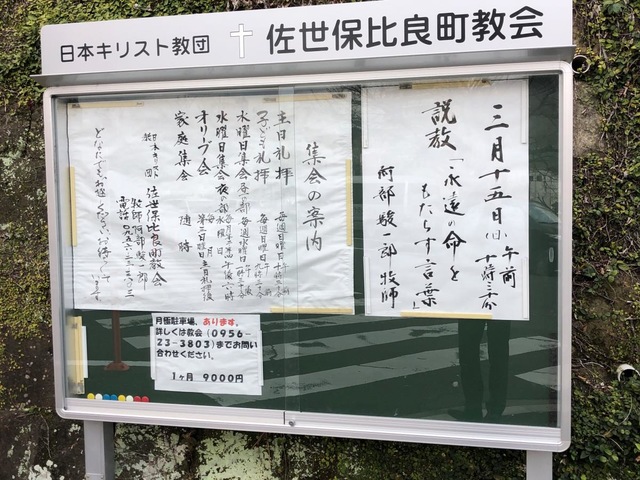 日本キリスト教団 佐世保比良町教会
三月十五日(日)午前
十時三十分
説教「永遠の命を
もたらす言葉」
阿部 牧師
集会の案内
主日礼拝 毎週日曜日午前
子ども礼拝 毎週日曜日
水曜日集会 毎週水曜日
水曜日集会夜の部
オリーブ会 毎月 第三日曜日主日礼拝後
家庭集会 随時
日本キリスト教団 佐世保比良町教会
牧師 阿部
電話
どなたでもお越しください。お待ちしています
月極駐車場、あります。
詳しくは教会(0956-
23-3803)までお問い
合わせください。
1ヶ月 9000円